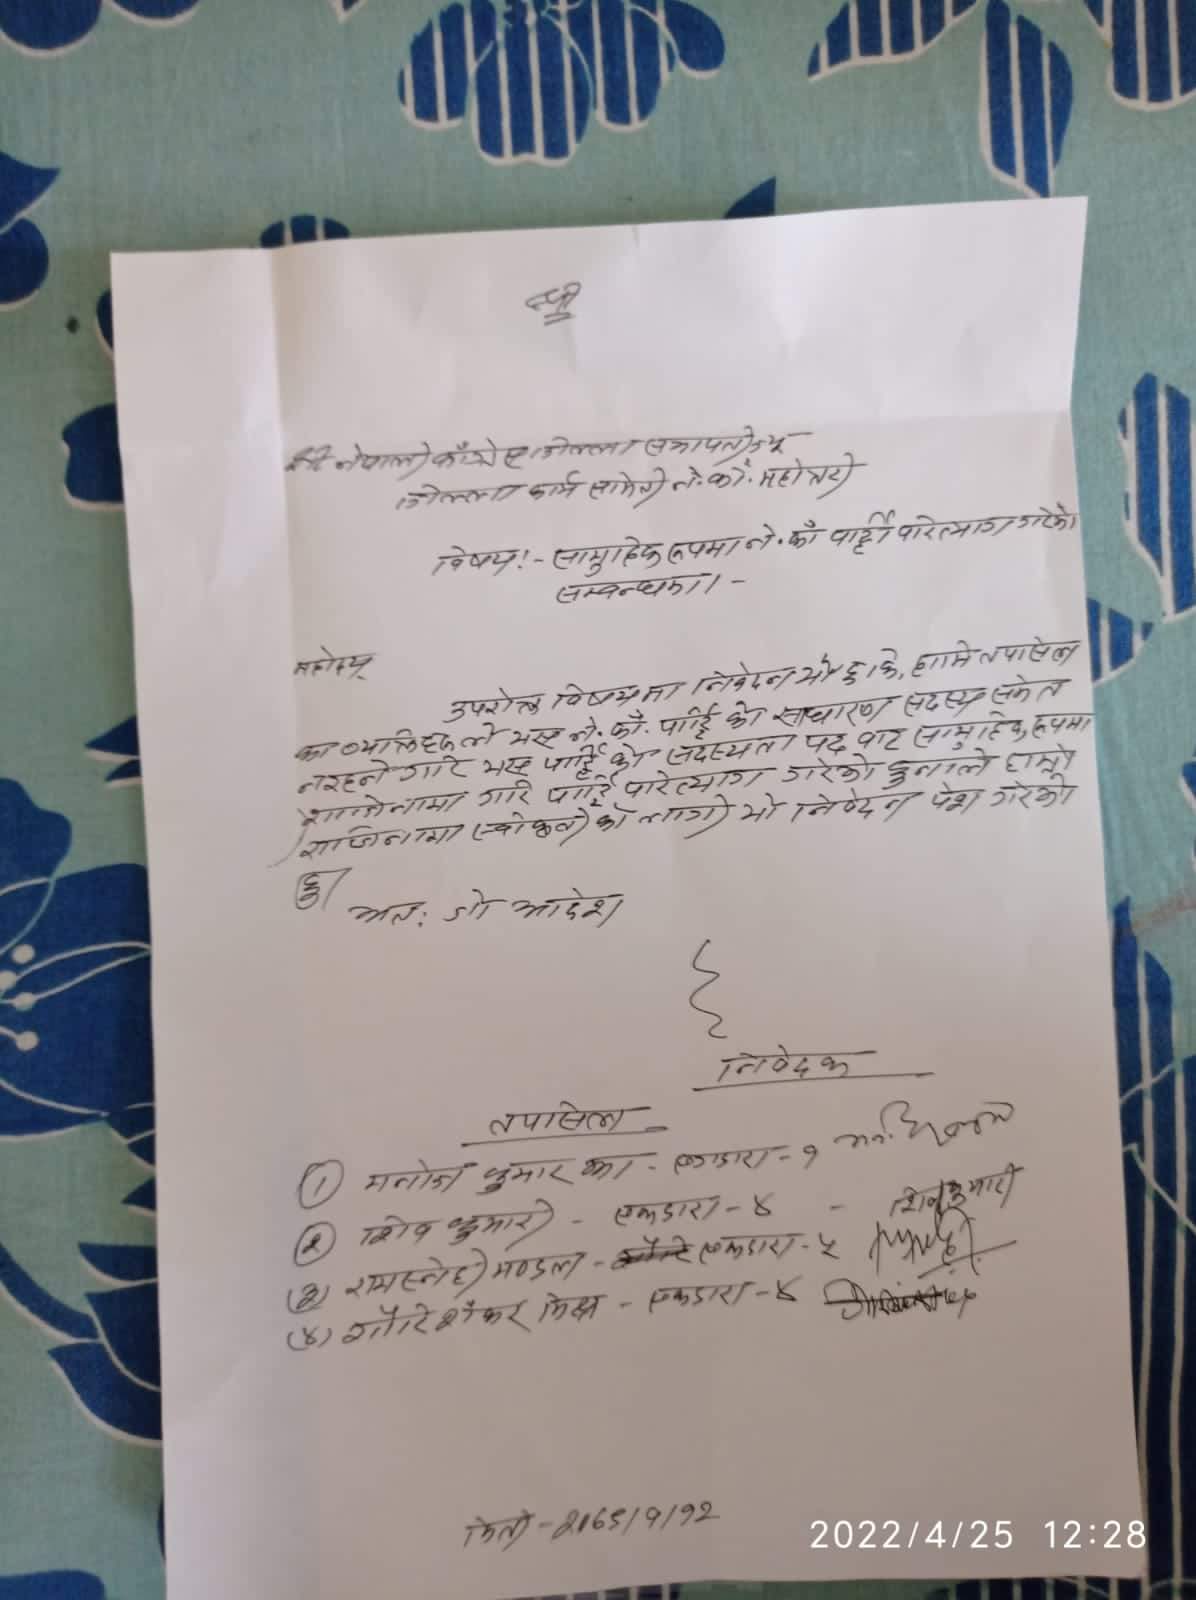 श्री नेपाली काँग्रेस जिल्ला सभापतीज्यू
जिल्ला कार्य समिती ने.काँ. महोत्तरी
विषय:- सामुहिक रूपमा ने.काँ पार्टी परित्याग गरेको
सम्वन्धमा।-
महोदय
उपरोक्त विषयमा निवेदन यो छ कि, हामि तपसिल
का व्यक्तिहरुले यस ने.काँ. पार्टि को साधारण सदस्य समेत
नरहने गरि यस पार्टि को सदस्यता पद वाट सामुहिक रूपमा
राजिनामा गरि पार्टि परित्याग गरेको हुनाले हाम्रो
राजिनामा स्वीकृती को लागी यो निवेदन पेश गरेको
छु
अत: जो आदेश
निवेदक
तपसिल
① मनोज कुमार झा - एकडारा - १
② शिव कुमारी - एकडारा - ४ - शिव कुमारी
(३) रामस्नेही मण्डल - एकडारा - ५
(४) गौरि शंकर मिश्र - एकडारा - ४
मिती - २०७९/१/१२
2022/4/25 12:28